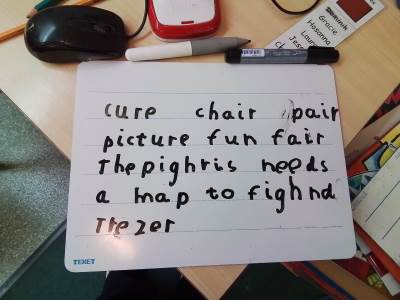 cure chair pair
picture fun fair
The pighris needs
a map to fighnd
Trezer
TEXET
Gracie
Hosanna